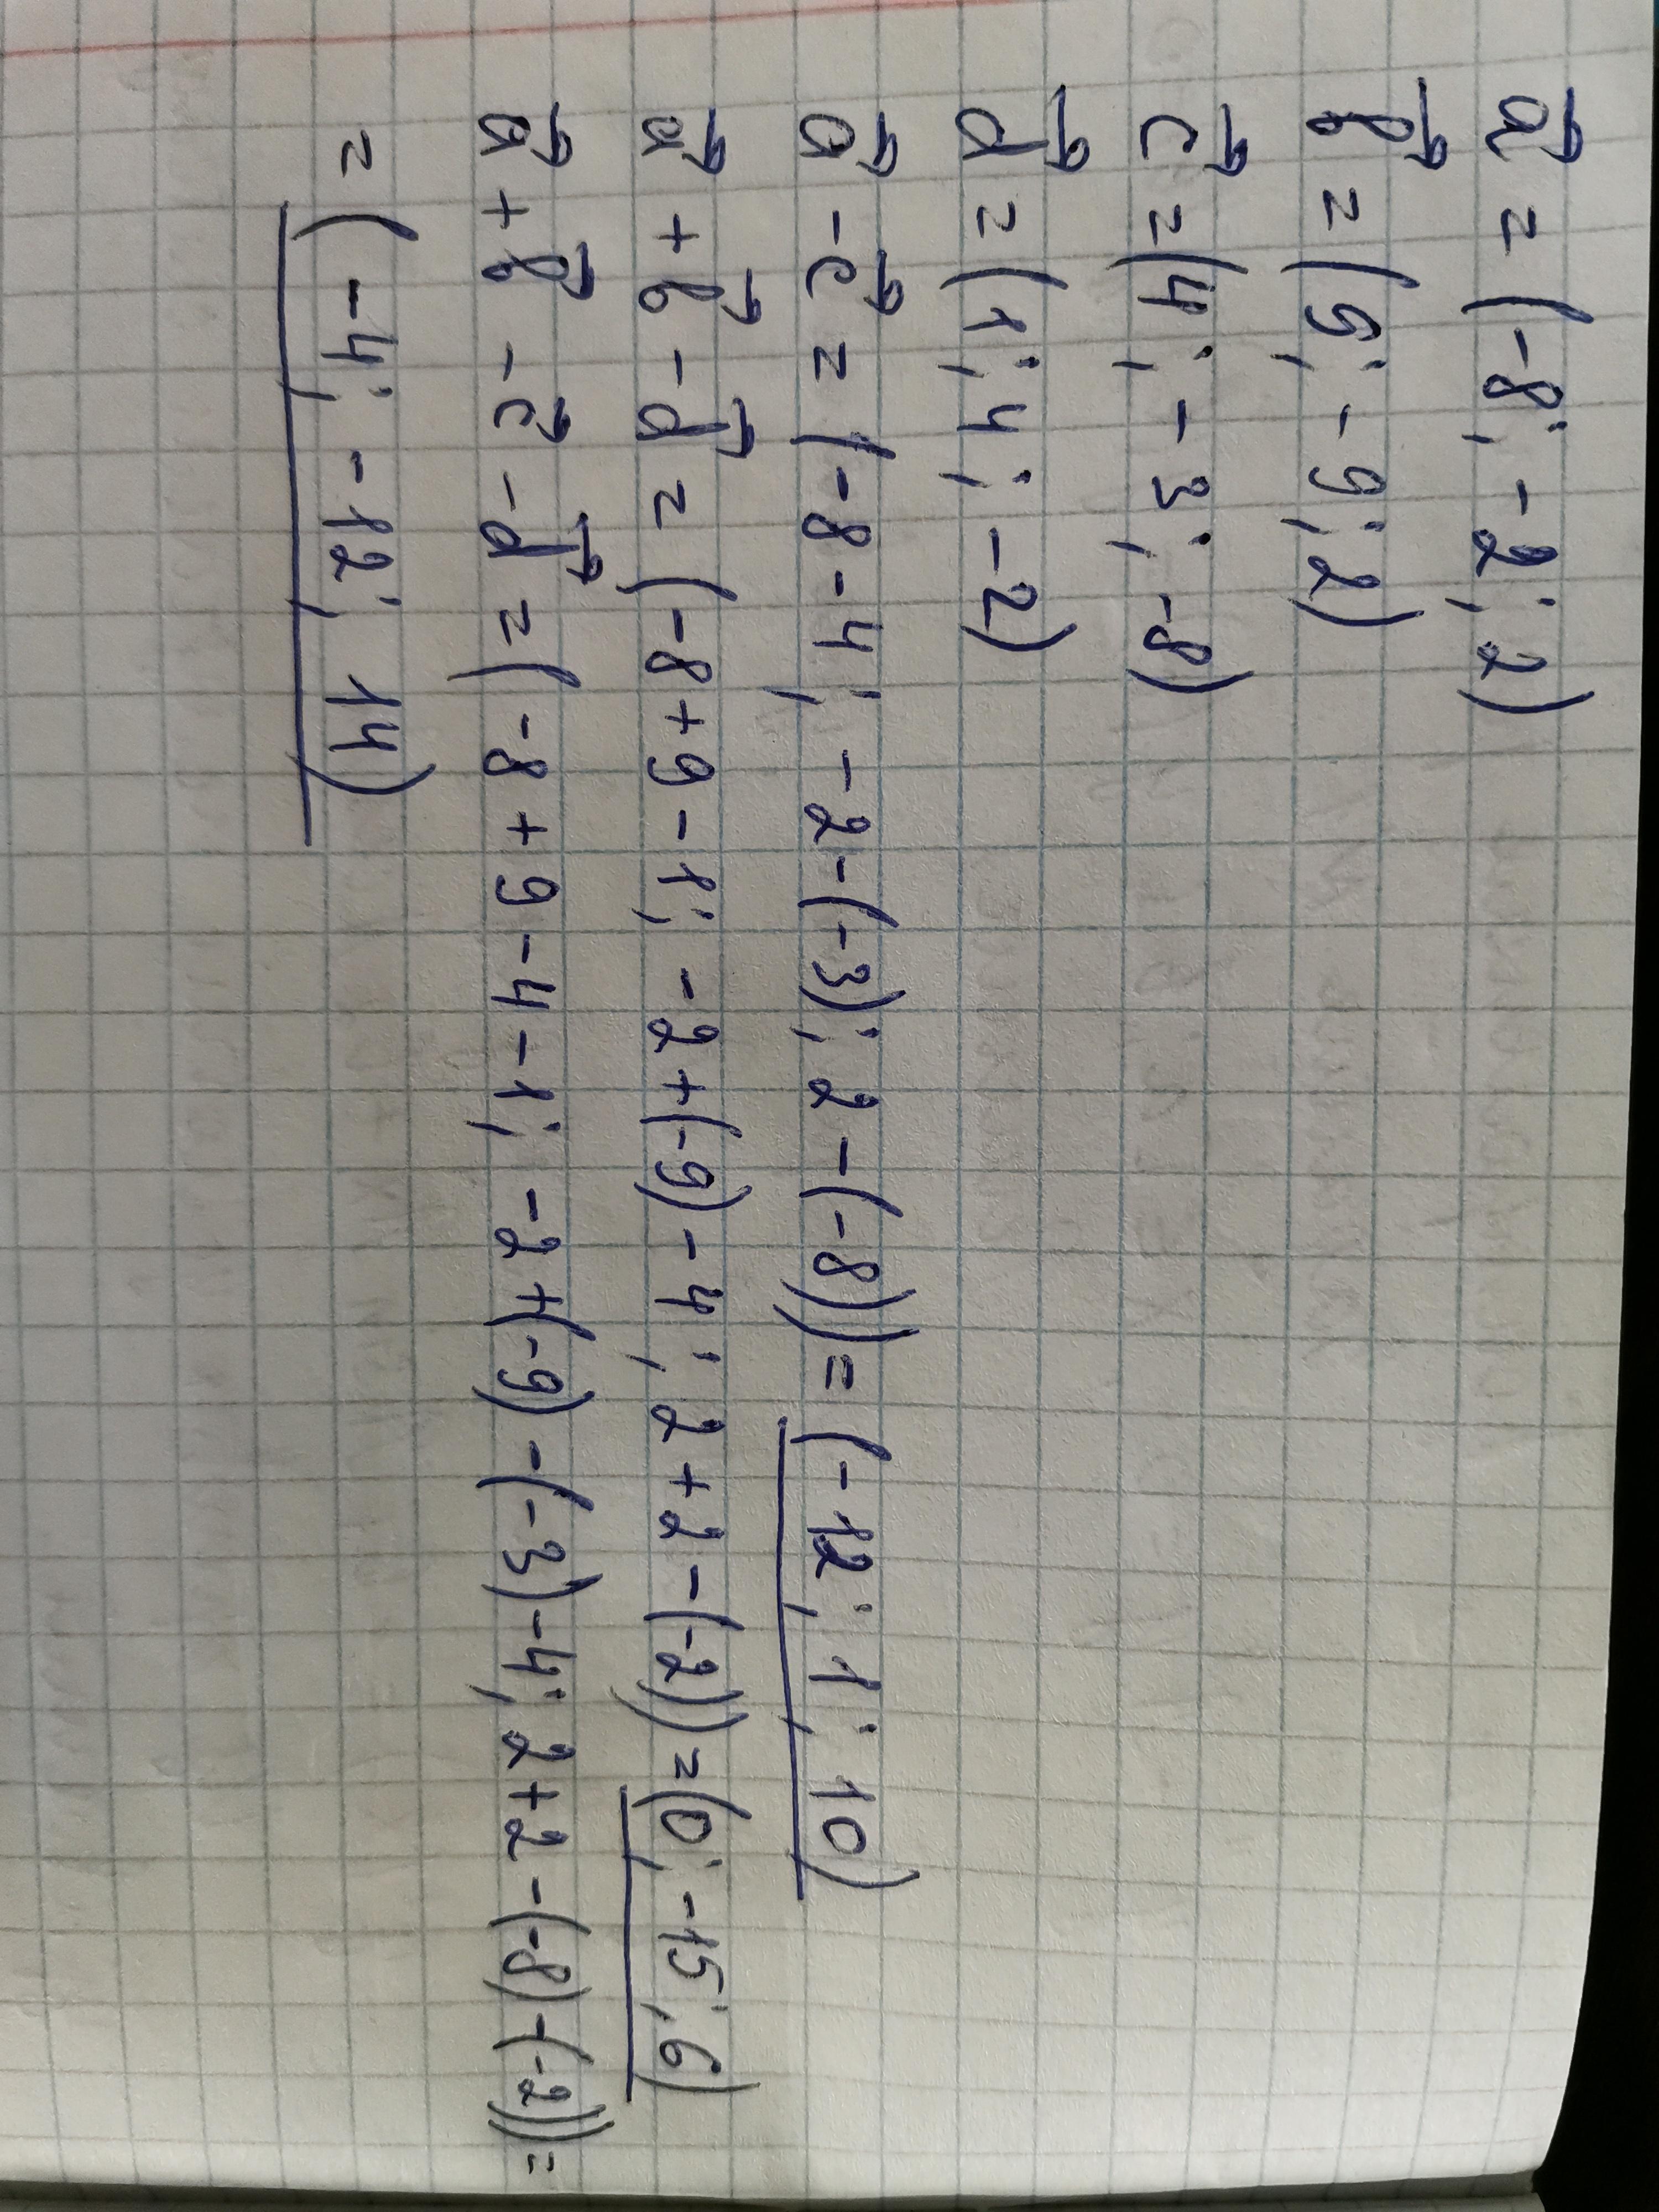 a⃗ = (-8; -2; 2)
b⃗ = (9; -9; 2)
c⃗ = (4; -3; -8)
d⃗ = (1; 4; -2)
a⃗ - c⃗ = (-8-4; -2-(-3); 2-(-8)) = (-12; 1; 10)
a⃗ + b⃗ - d⃗ = (-8+9-1; -2+(-9)-4; 2+2-(-2)) = (0; -15; 6)
a⃗ + b⃗ - c⃗ - d⃗ = (-8+9-4-1; -2+(-9)-(-3)-4; 2+2-(-8)-(-2)) =
= (-4; -12; 14)